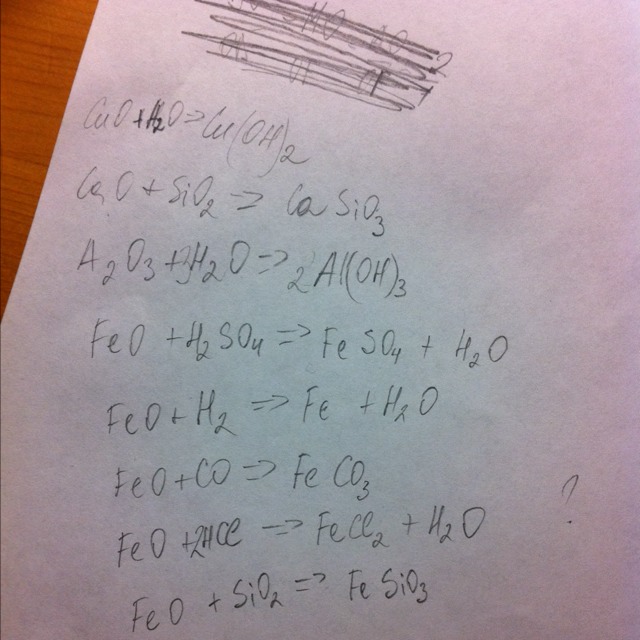 CuO + H₂O => Cu(OH)₂
CaO + SiO₂ => CaSiO₃
A₂O₃ + 3H₂O => 2Al(OH)₃
FeO + H₂SO₄ => FeSO₄ + H₂O
FeO + H₂ => Fe + H₂O
FeO + CO => FeCO₃
FeO + 2HCl => FeCl₂ + H₂O ?
FeO + SiO₂ => FeSiO₃